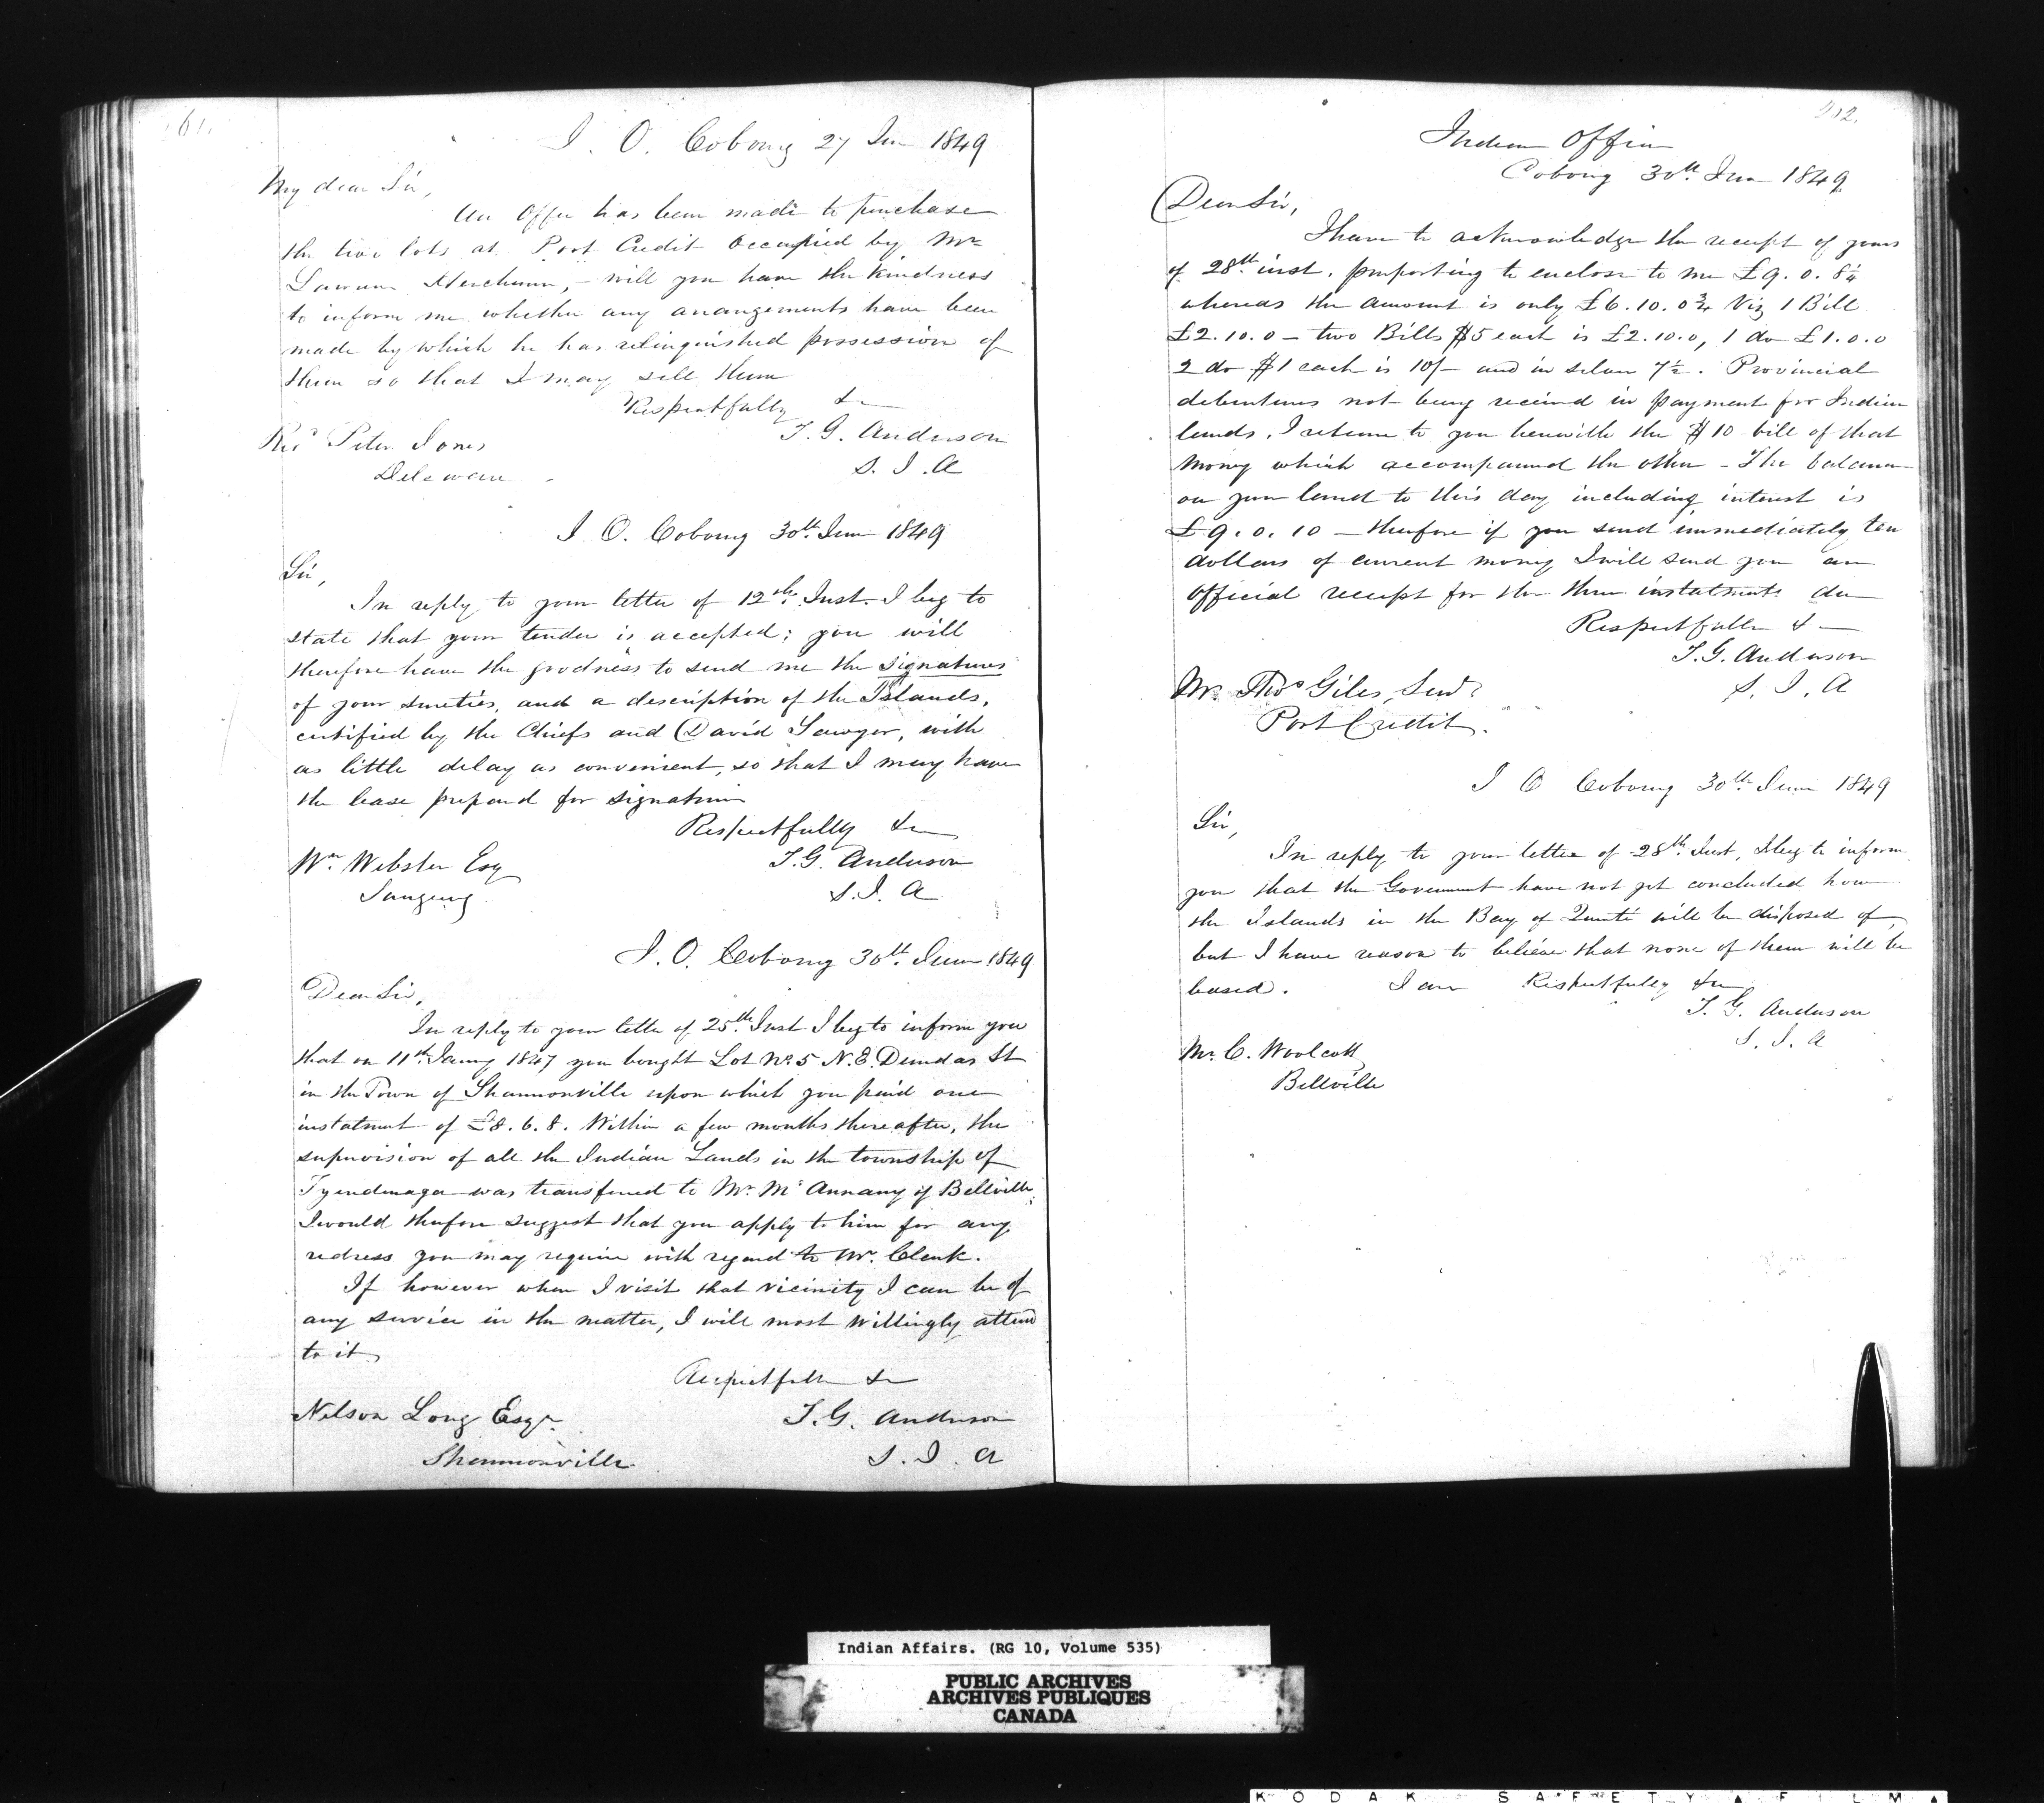 I. O. Cobourg 27 June 1849
My dear Sir,
An offer has been made to purchase
the two lots at Port Credit occupied by Mr
Merchant, - will you have the kindness
to inform me whether any arrangements have been
made by which he has relinquished possession of
them so that I may sell them
Respectfully &c
T. G. Anderson
S. I. A
Revd Peter Jones
Delaware
I O. Cobourg 30th June 1849
Sir,
In reply to your letter of 12th Inst. I beg to
state that your tender is accepted; you will
therefore have the goodness to send me the signatures
of your sureties, and a description of the Islands,
certified by the Chiefs and David Sawyer, with
as little delay as convenient, so that I may have
the lease prepared for signature
Respectfully &c
T. G. Anderson
S. I. A
Wm Webster Esq
Saugeeng
I. O. Cobourg 30th June 1849
Dear Sir,
In reply to your letter of 25th Inst I beg to inform you
that on 11th Jany 1847 you bought Lot No 5 N. E. Dundas St
in the Town of Shannonville upon which you paid one
instalment of £8. 6. 8. Within a few months thereafter, the
supervision of all the Indian Lands in the township of
Tyendinaga was transferred to Mr. McAnnany of Bellville;
I would therefore suggest that you apply to him for any
redress you may require with regard to Mr. Clark.
If however when I visit that vicinity I can be of
any service in the matter, I will most willingly attend
to it
Respectfully &c
T. G. Anderson
S. I. A
Nelson Long Esqr
Shannonville
202.
Indian Office
Cobourg 30th June 1849
Dear Sir,
I have to acknowledge the receipt of yours
of 28th inst. purporting to enclose to me £9. 0. 8¼
whereas the amount is only £6. 10. 0¾ Viz 1 Bill
£2. 10. 0 - two Bills $5 each is £2. 10. 0, 1 do £1. 0. 0
2 do $1 each is 10/- and in silver 7½. Provincial
debentures not being received in payment for Indian
lands, I return to you herewith the $10 bill of that
money which accompanied the other - The balance
on your land to this day including interest is
£9. 0. 10 - therefore if you send immediately ten
dollars of current money I will send you an
official receipt for the three instalments due
Respectfully &c
T. G. Anderson
S. I. A
Mr. Thos Giles, Senr
Port Credit.
I O Cobourg 30th June 1849
Sir,
In reply to your letter of 28th Inst, I beg to inform
you that the Government have not yet concluded how
the Islands in the Bay of Quinté will be disposed of,
but I have reason to believe that none of them will be
leased. I am Respectfully &c
T. G. Anderson
S. I. A
Mr. C. Woolcott
Bellville
Indian Affairs. (RG 10, Volume 535)
PUBLIC ARCHIVES
ARCHIVES PUBLIQUES
CANADA
KODAK SAFETY FILM